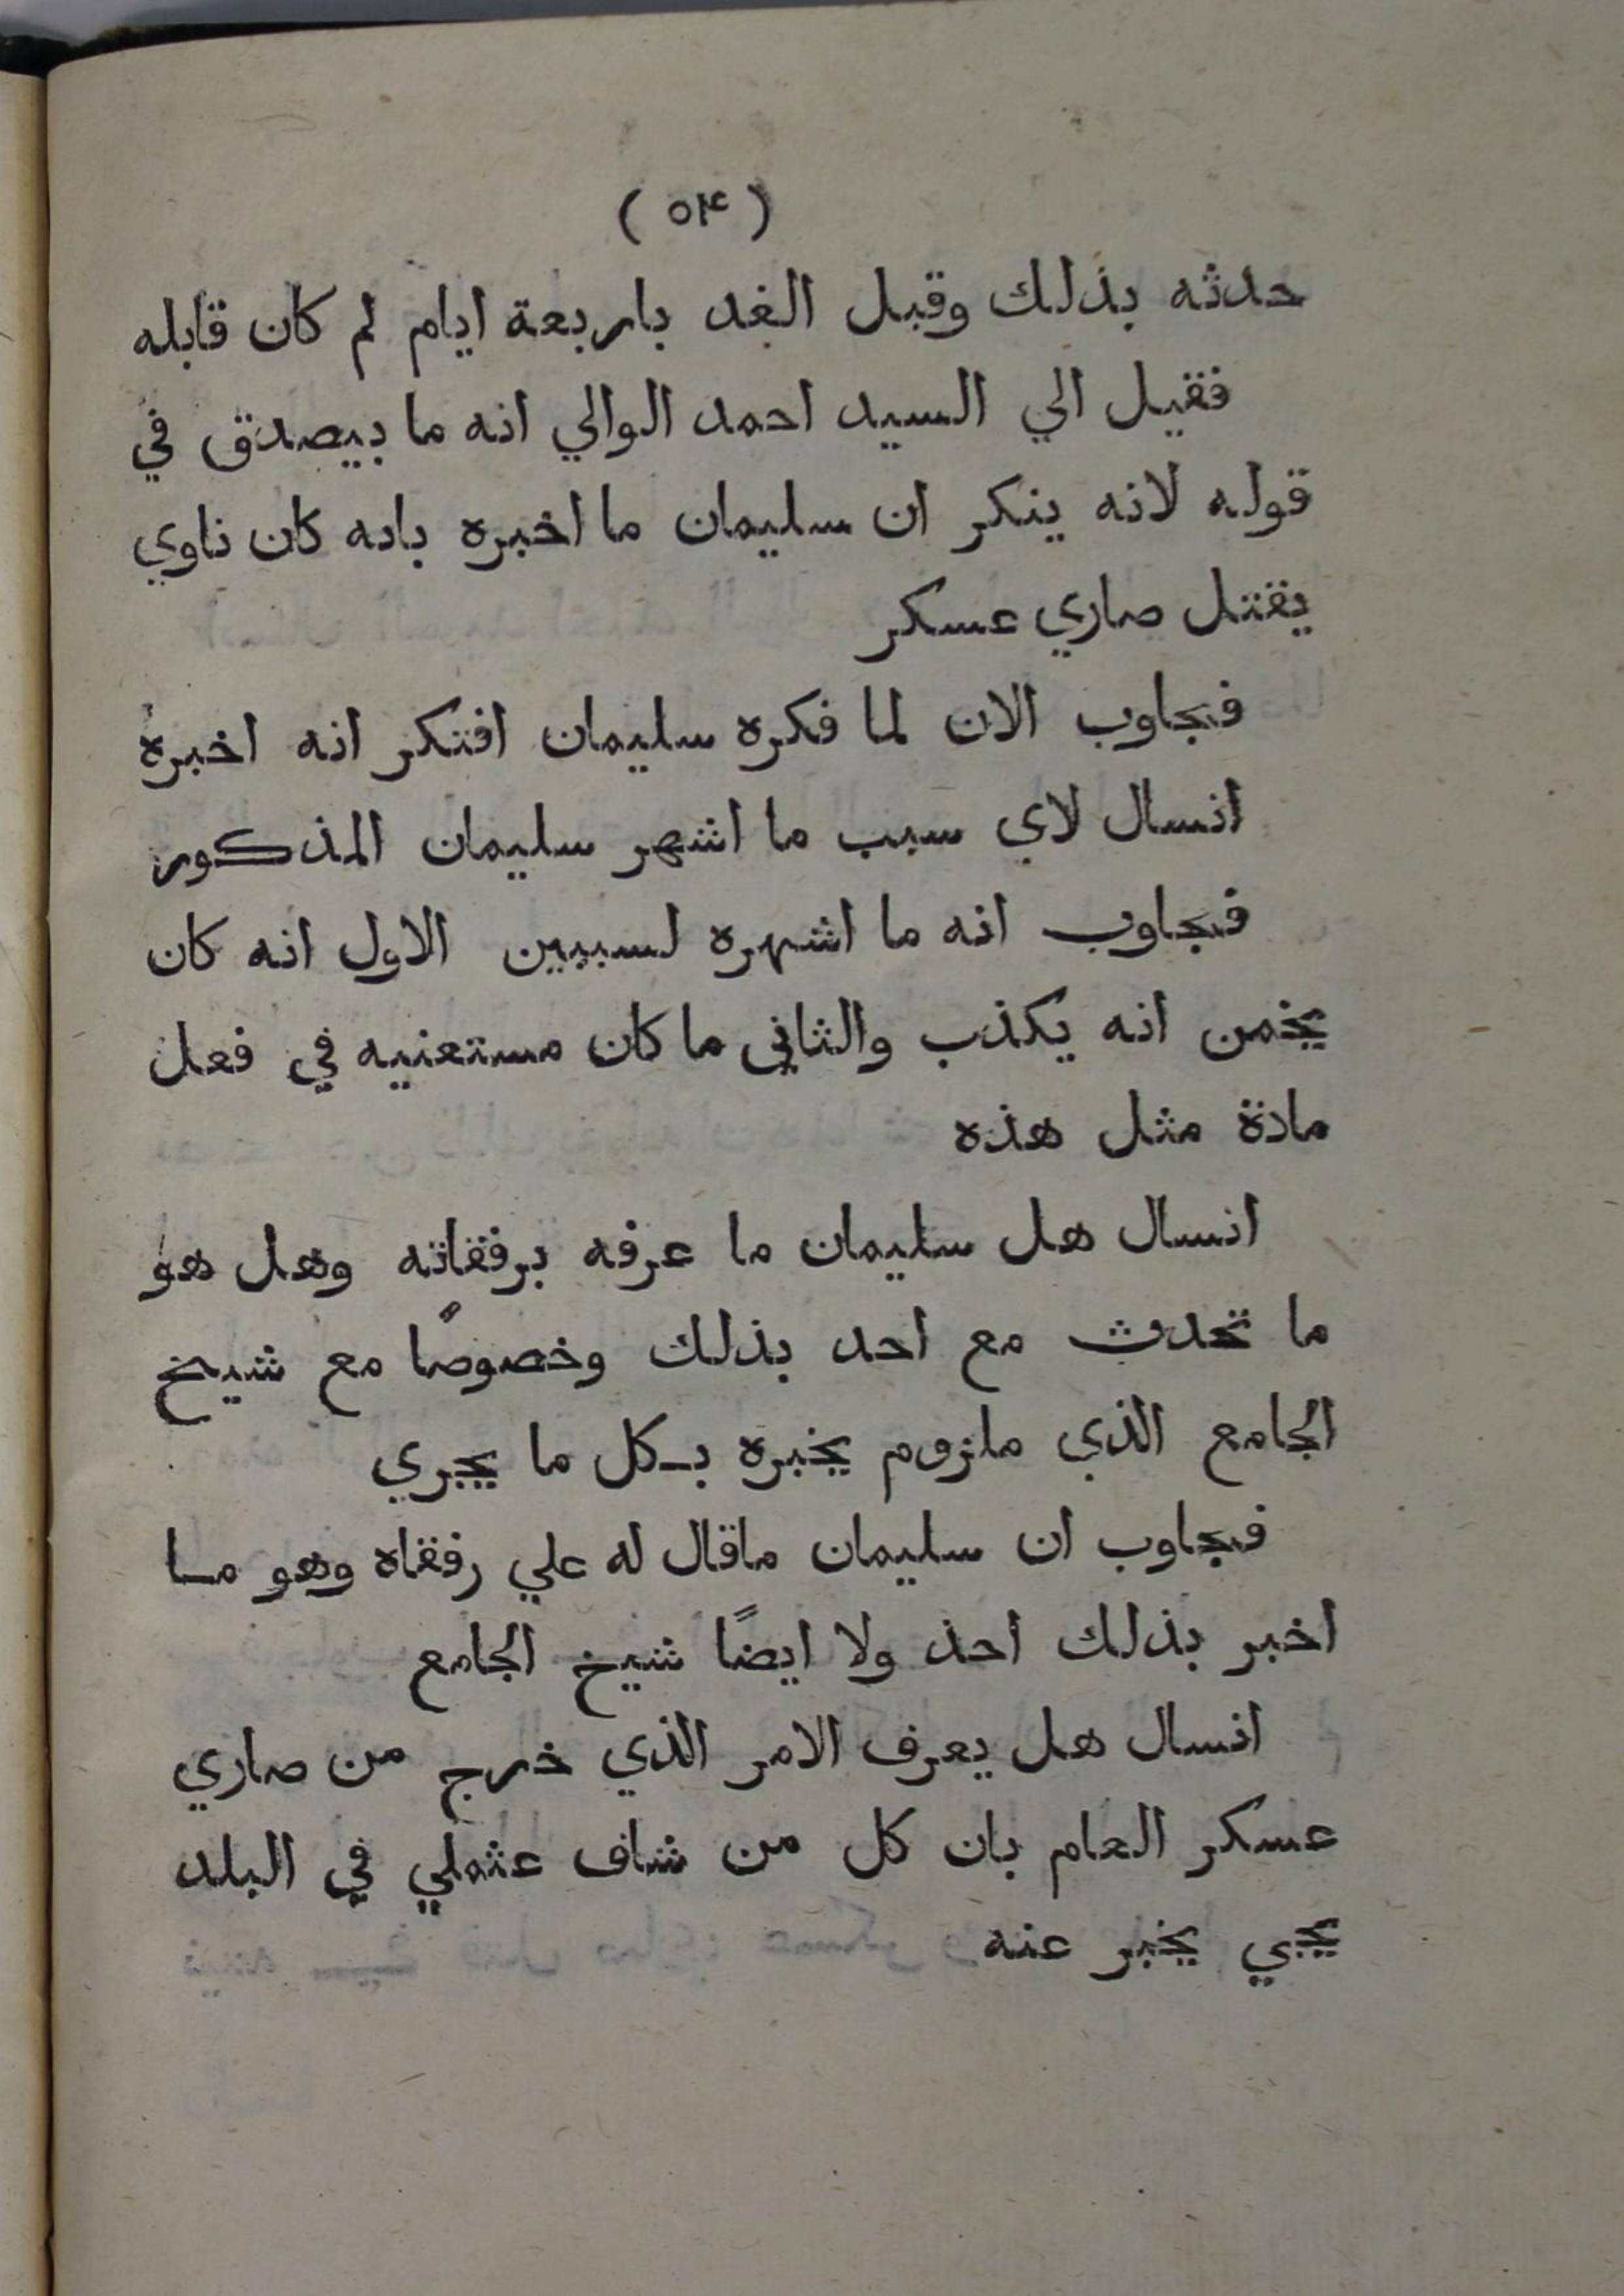 ( ٥٤ )
حدثه بذلك وقبل الغد باربعة ايام لم كان قابله
فقيل الي السيد احمد الوالي انه ما بيصدق في
قوله لانه ينكر ان سليمان ما اخبره بانه كان ناوي
يقتل صاري عسكر
فجاوب الان لما فكره سليمان افتكر انه اخبره
انسال لاي سبب ما اشهر سليمان المذكور
فجاوب انه ما اشهره لسببين الاول انه كان
يخمن انه يكذب والثاني ما كان مستعنيه في فعل
مادة مثل هذه
انسال هل سليمان ما عرفه برفقاته وهل هو
ما تحدث مع احد بذلك وخصوصًا مع شيخ
الجامع الذي ملزوم يخبره بكل ما يجري
فجاوب ان سليمان ماقال له علي رفقاه وهو ما
اخبر بذلك احذ ولا ايضًا شيخ الجامع
انسال هل يعرف الامر الذي خرج من صاري
عسكر العام بان كل من شاف عثملي في البلد
يجي يخبر عنه